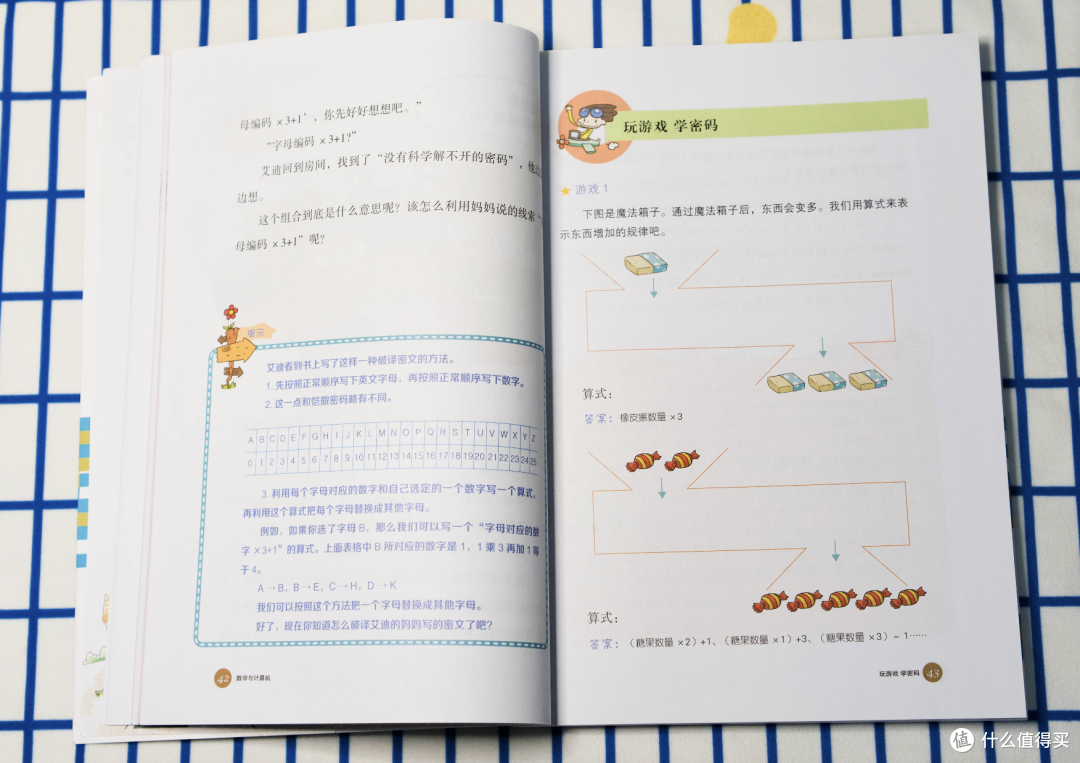 母编码 ×3+1”，你先好好想想吧。”
“字母编码 ×3+1?”
艾迪回到房间，找到了“没有科学解不开的密码”，他边
边想。
这个组合到底是什么意思呢？该怎么利用妈妈说的线索“
母编码 ×3+1”呢？
提示
艾迪看到书上写了这样一种破译密文的方法。
1. 先按照正常顺序写下英文字母，再按照正常顺序写下数字。
2. 这一点和恺撒密码略有不同。
A B C D E F G H I J K L M N O P Q R S T U V W X Y Z
0 1 2 3 4 5 6 7 8 9 10 11 12 13 14 15 16 17 18 19 20 21 22 23 24 25
3. 利用每个字母对应的数字和自己选定的一个数字写一个算式，
再利用这个算式把每个字母替换成其他字母。
例如，如果你选了字母 B，那么我们可以写一个“字母对应的数
字 ×3+1”的算式。上面表格中 B 所对应的数字是 1，1 乘 3 再加 1 等
于 4。
A→B, B→E, C→H, D→K
我们可以按照这个方法把一个字母替换成其他字母。
好了，现在你知道怎么破译艾迪的妈妈写的密文了吧？
42 数学与计算机
玩游戏 学密码
游戏 1
下图是魔法箱子。通过魔法箱子后，东西会变多。我们用算式来表
示东西增加的规律吧。
算式：
答案：橡皮擦数量 ×3
算式：
答案：（糖果数量 ×2）+1、（糖果数量 ×1）+3、（糖果数量 ×3）- 1……
玩游戏 学密码 43
值 什么值得买